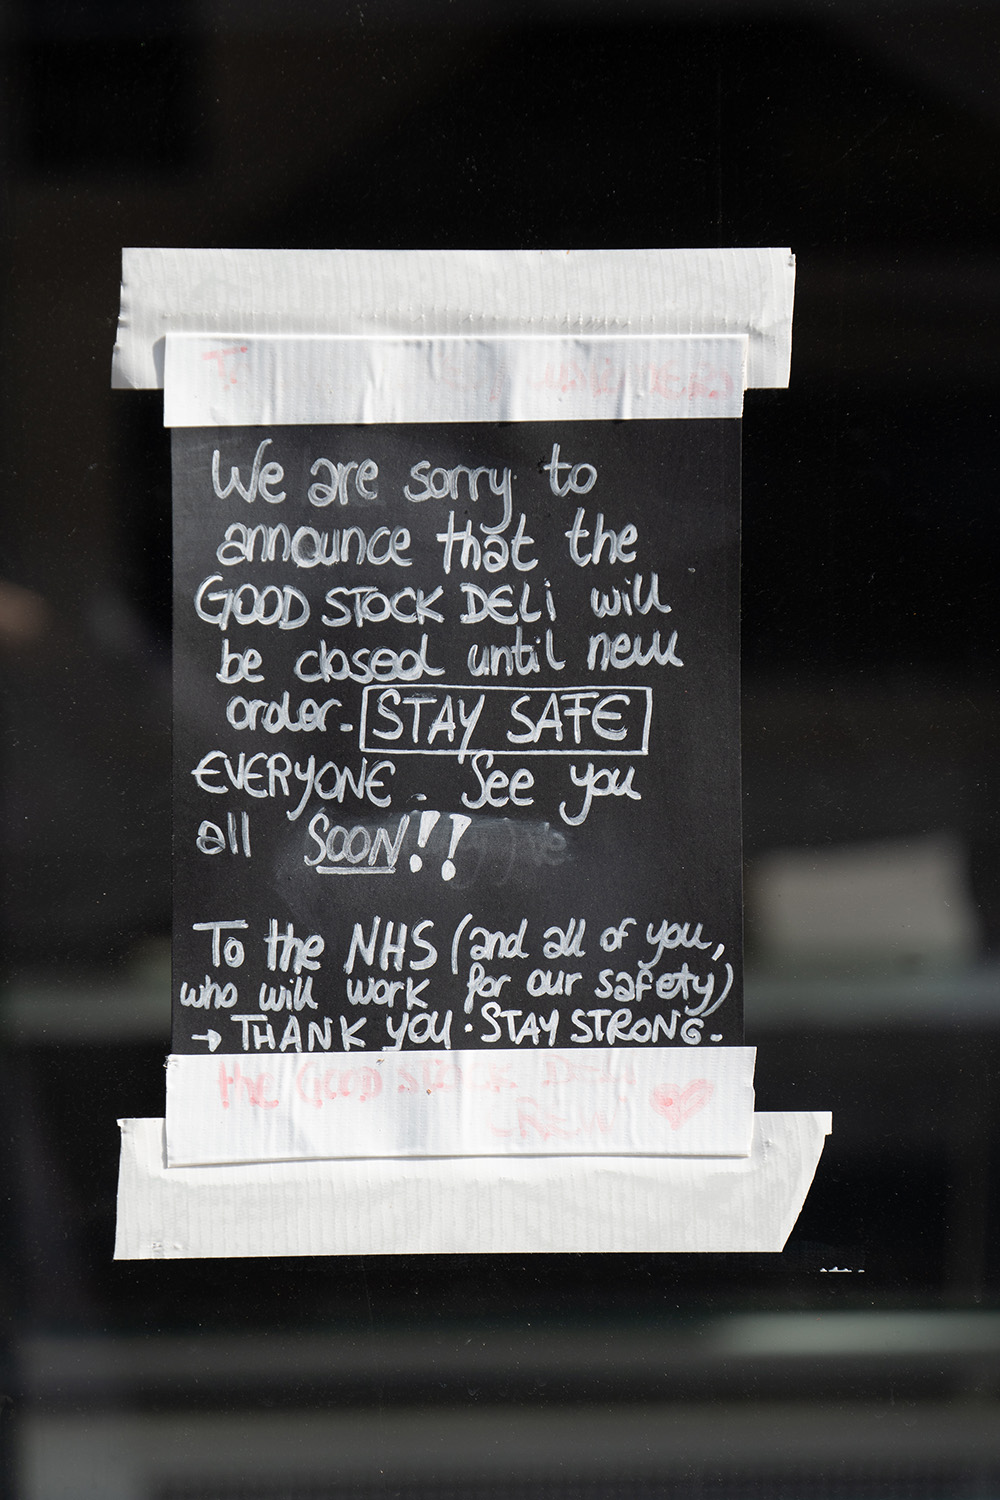 To
We are sorry to
announce that the
GOOD STOCK DELi will
be closed until new
order. STAY SAFE
EVERYONE. See you
all SOON!!
To the NHS (and all of you,
who will work for our safety)
→ THANK YOU. STAY STRONG.
the GOOD STOCK DELI
CREW